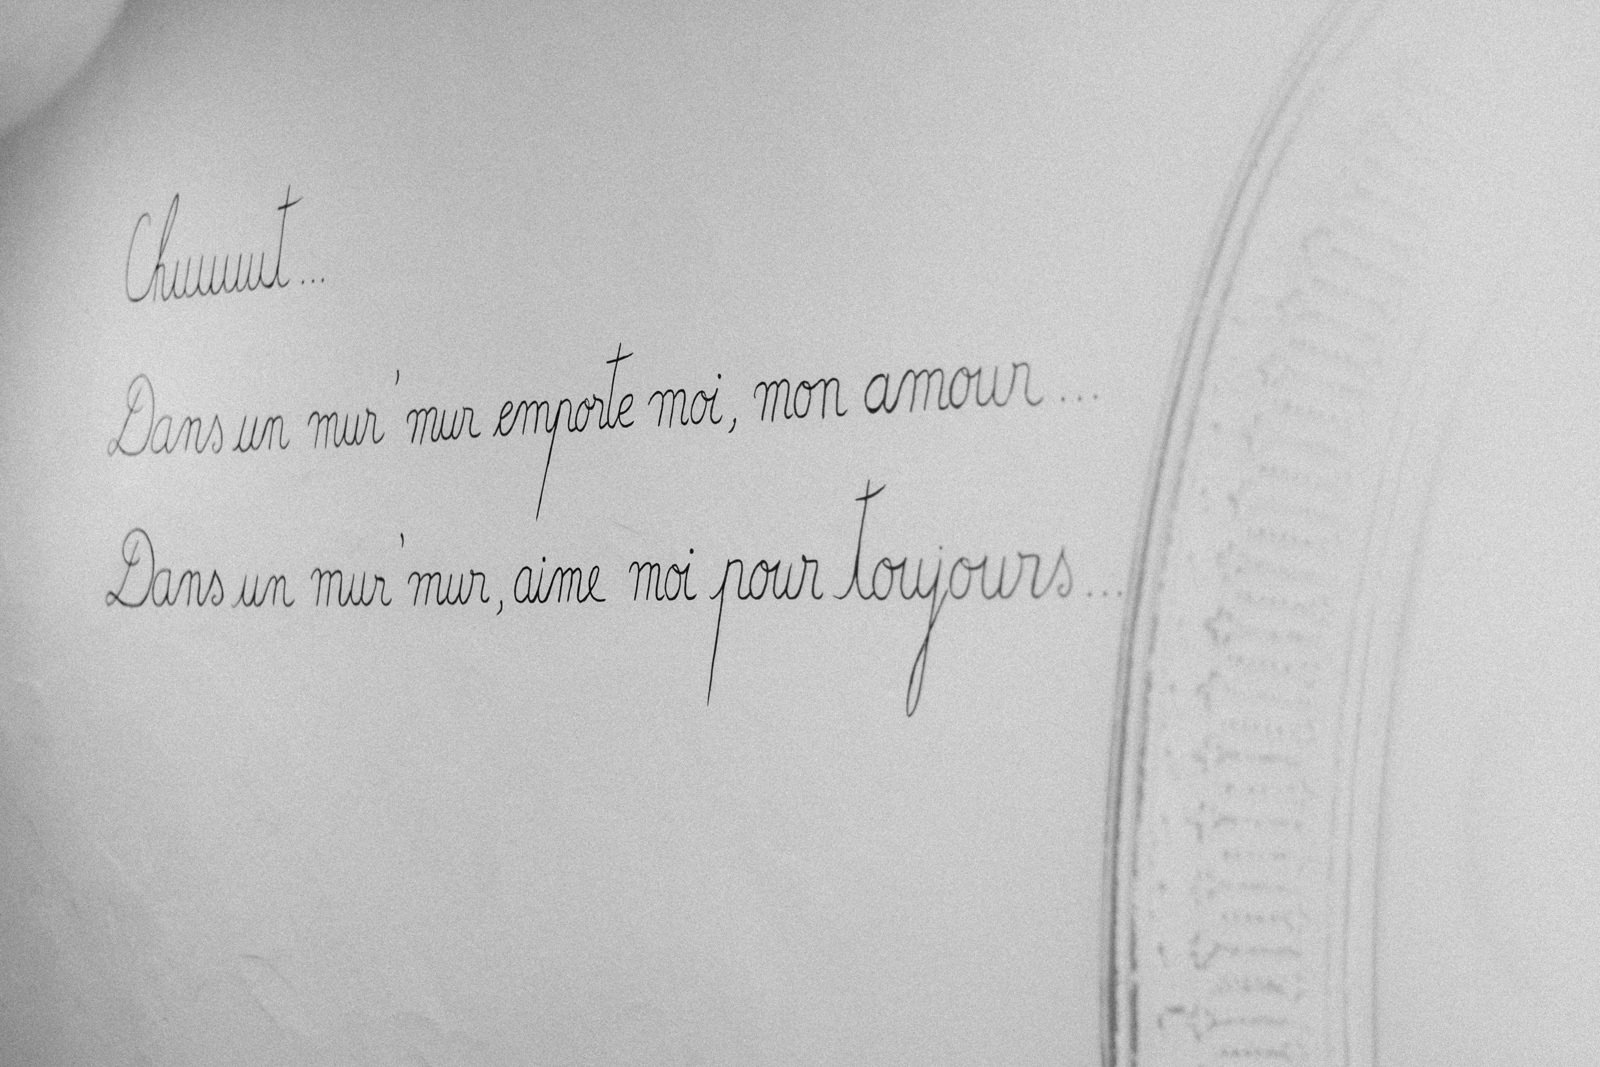 Chuuuut...
Dans un mur'mur emporte moi, mon amour...
Dans un mur'mur, aime moi pour toujours...